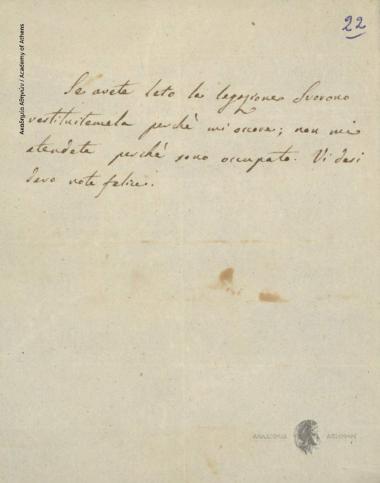 22
Ακαδημία Αθηνών / Academy of Athens
Se avete leto la legazione Svorono
restituitemela perchè mi ocora; non mi
atendete perchè sono occupato. Vi desi
dero note felice.
ΑΚΑΔΗΜΙΑ ΑΘΗΝΩΝ